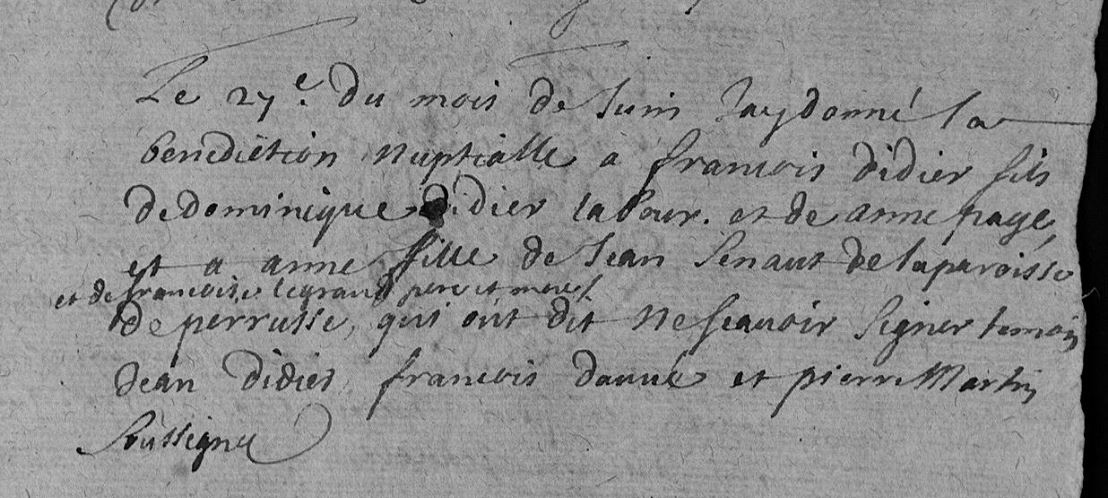 Le 27e. du mois de Juin Jay donné la
benediction nuptialle a francois didier fils
de dominique didier labour. et de anne page,
et a anne fille de Jean Senaut de la paroisse
et de francoise legrand pere et mere
de perrusse, qui ont dit ne scauoir signer temoin
Jean didier francois et pierre Martin
soussigne